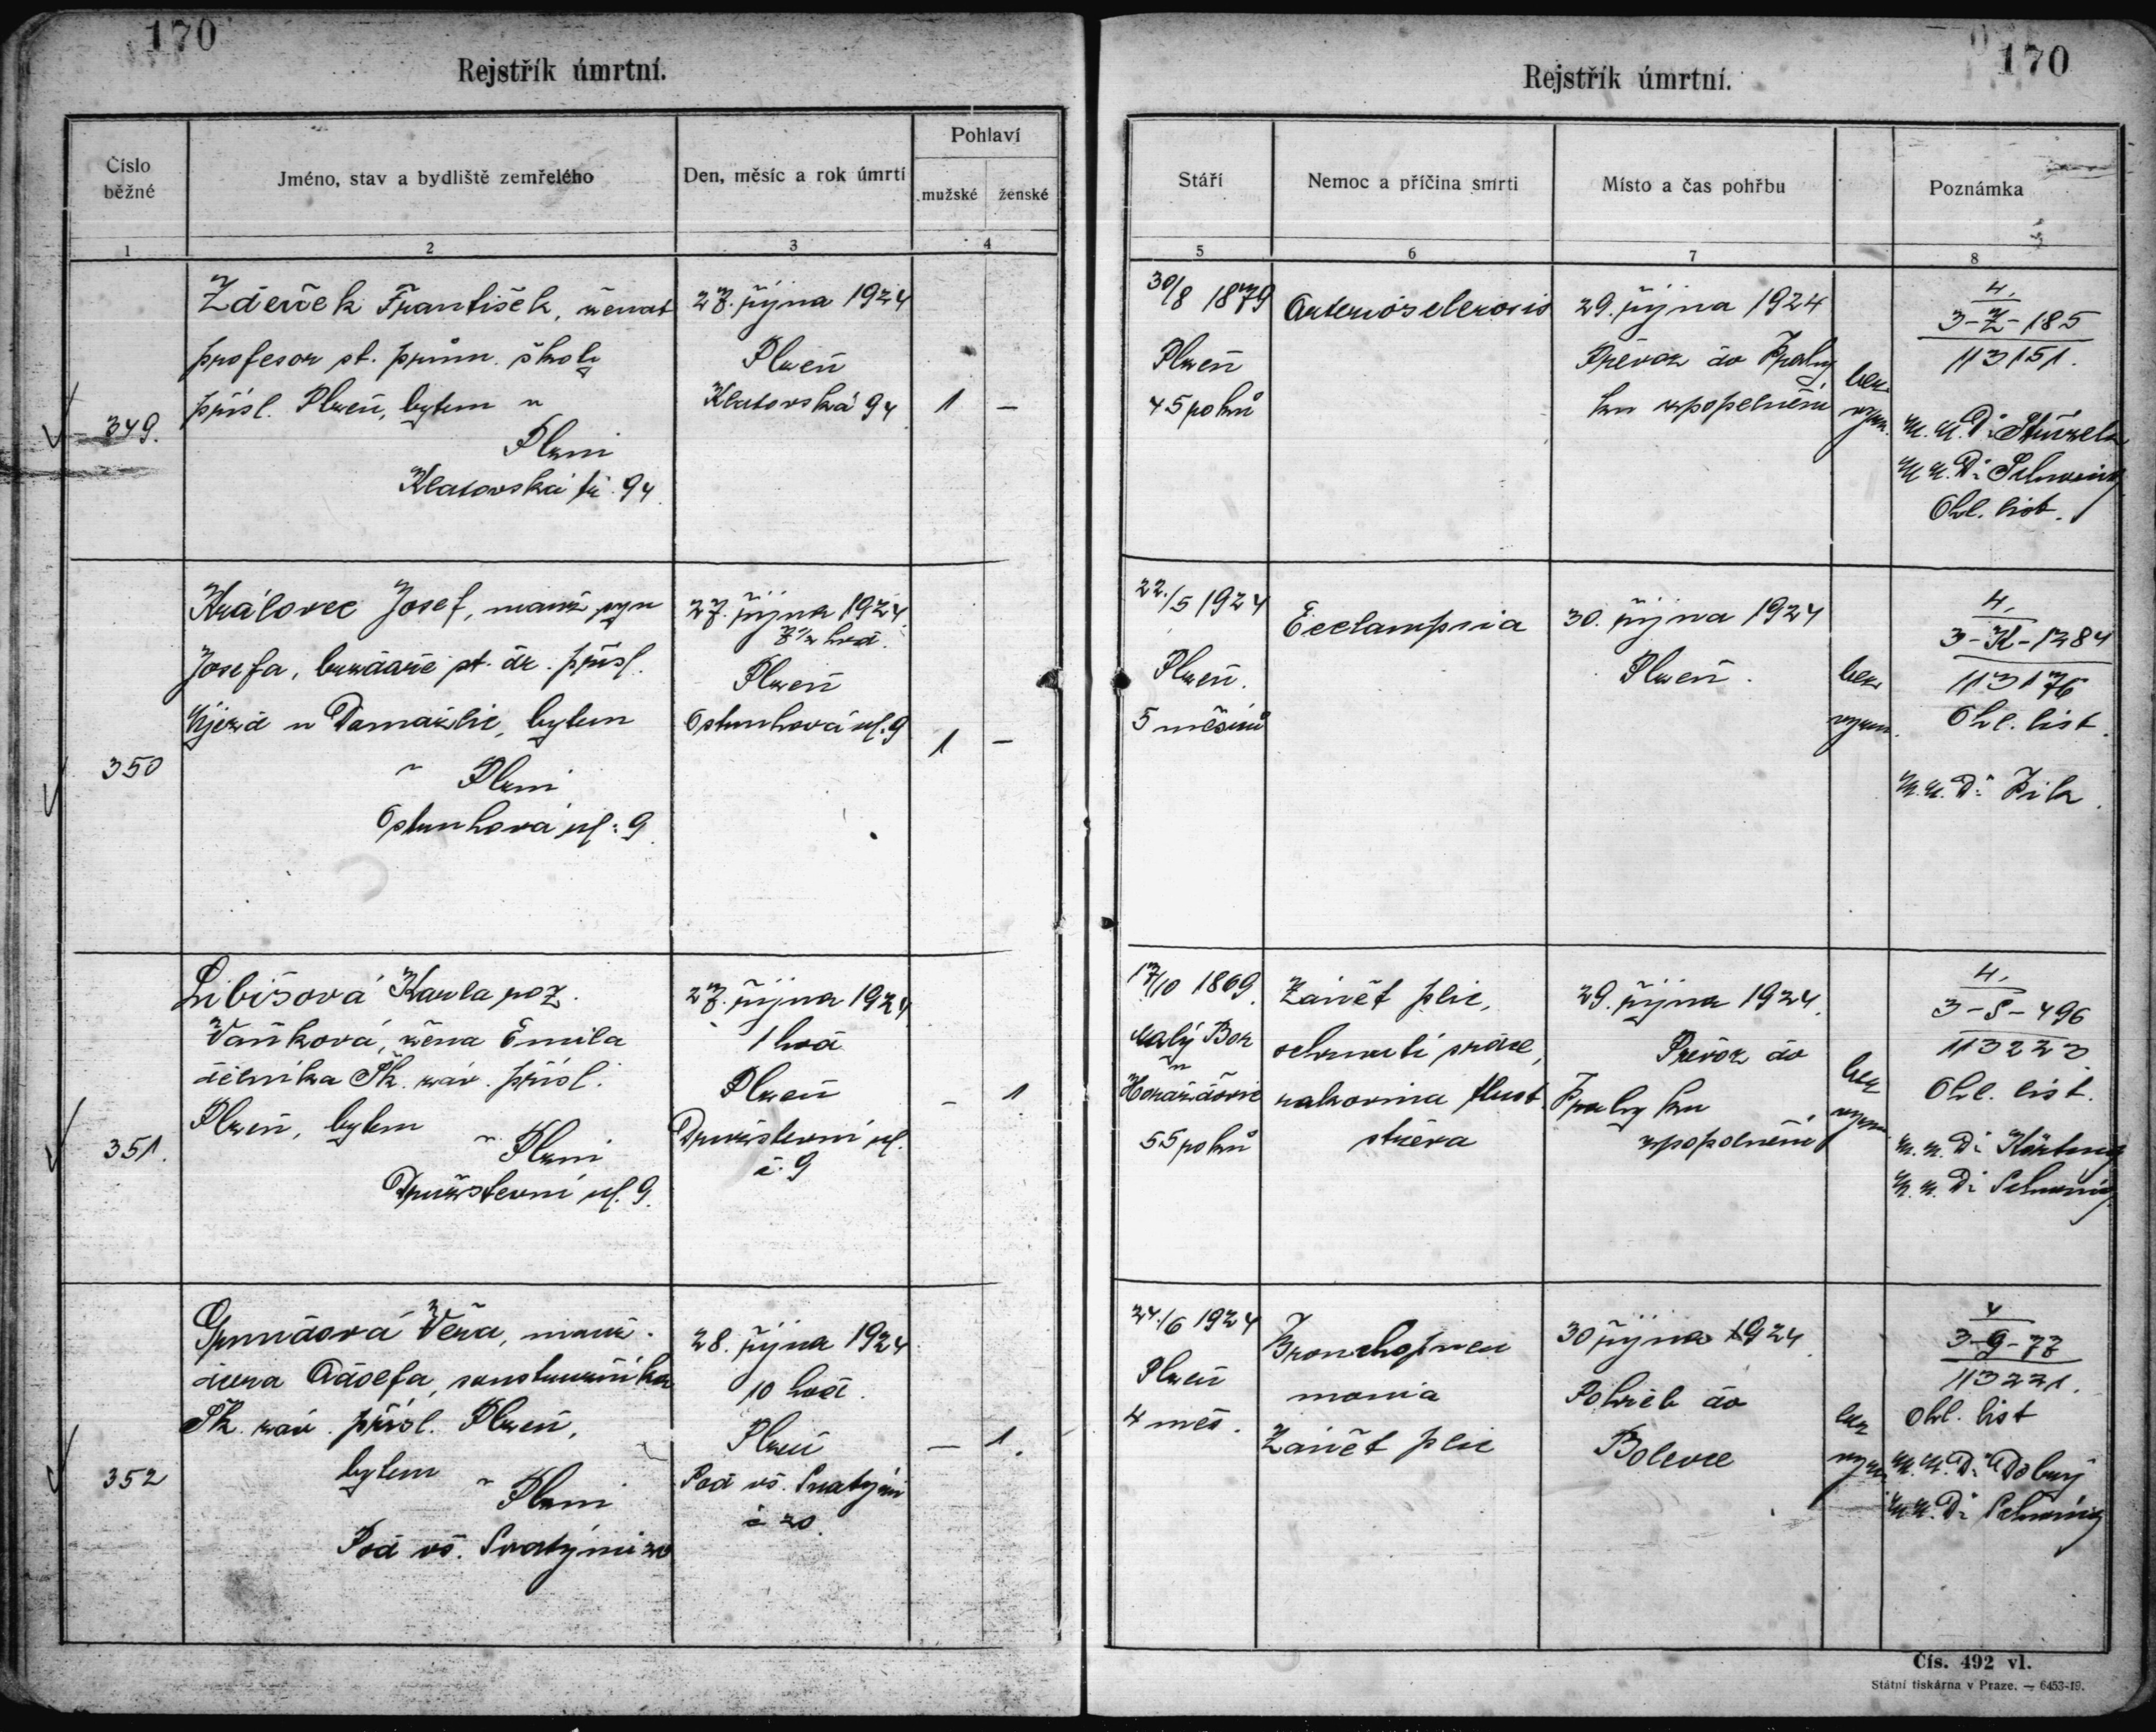 170
Rejstřík úmrtní.
Číslo běžné
Jméno, stav a bydliště zemřelého
Den, měsíc a rok úmrtí
Pohlaví
mužské
ženské
1
2
3
4
349.
Zdeněk František, ženat
profesor st. prům. školy
přísl. Plzeň, bytem v
Plzni
Klatovská tř. 94
27. října 1924
Plzeň
Klatovská 94
1
—
350
Královec Josef, manž. syn
Josefa, brzdaře st. dr. přísl.
Újezd u Domažlic, bytem
v Plzni
Ostruhová ul. 9
27. října 1924
7 1/2 hod.
Plzeň
Ostruhová ul. 9
1
—
351.
Libišová Karla roz.
Vaňková, žena Emila
dělníka Šk. záv. přísl.
Plzeň, bytem
v Plzni
Družstevní ul. 9.
27. října 1924
1 hod
Plzeň
Družstevní ul.
č. 9
—
1
352
Věra, manž.
dcera Adolfa, soustružníka
Šk. záv. přísl. Plzeň,
bytem
v Plzni
Pod vš. Svatými 20
28. října 1924
10 hod.
Plzeň
Pod vš. Svatými
č 20.
—
1.
170
Rejstřík úmrtní.
Stáří
Nemoc a příčina smrti
Místo a čas pohřbu
Poznámka
5
6
7
8
30/8 1879
Plzeň
45 roků
Arteriosclerosis
29. října 1924
Převoz do Prahy
ku zpopelnění
bez
vyzn.
4.
3-Z-185
113151.
M.U.Dr
M.U.Dr
Ohl. list.
22./5 1924
Plzeň.
5 měsíců
Ecclampsia
30. října 1924
Plzeň.
bez
vyzn.
4.
3-K-1284
113176
Ohl. list.
M.U.Dr Zik.
17/10 1869.
Malý Bor
u
Horažďovic
55 roků
Zánět plic,
ochrnutí srdce,
rakovina tlust.
střeva
29. října 1924.
Převoz do
Prahy ku
zpopelnění
bez
vyzn.
4.
3-S-496
113223
Ohl. list.
M.U.Dr
M.U.Dr
24./6 1924
Plzeň
4 měs.
Bronchopneu
monia
Zánět plic
30 října 1924
Pohřeb do
Bolevce
bez
vyzn.
4
3-9-77
113221.
Ohl. list
M.U.Dr Dobrý
M.U.Dr
Čís. 492 vl.
Státní tiskárna v Praze. — 6453-19.